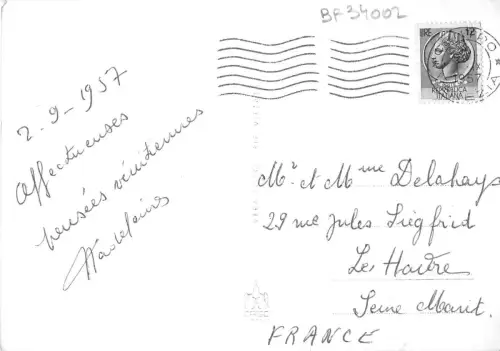 BF34002
LIRE 12
REPUBBLICA
ITALIANA
2-9-1957
Affectueuses
pensées vénitiennes
Madeleine
Mr et Mme Delahays
29 rue Jules Siegfrid
Le Havre
Seine Marit.
FRANCE